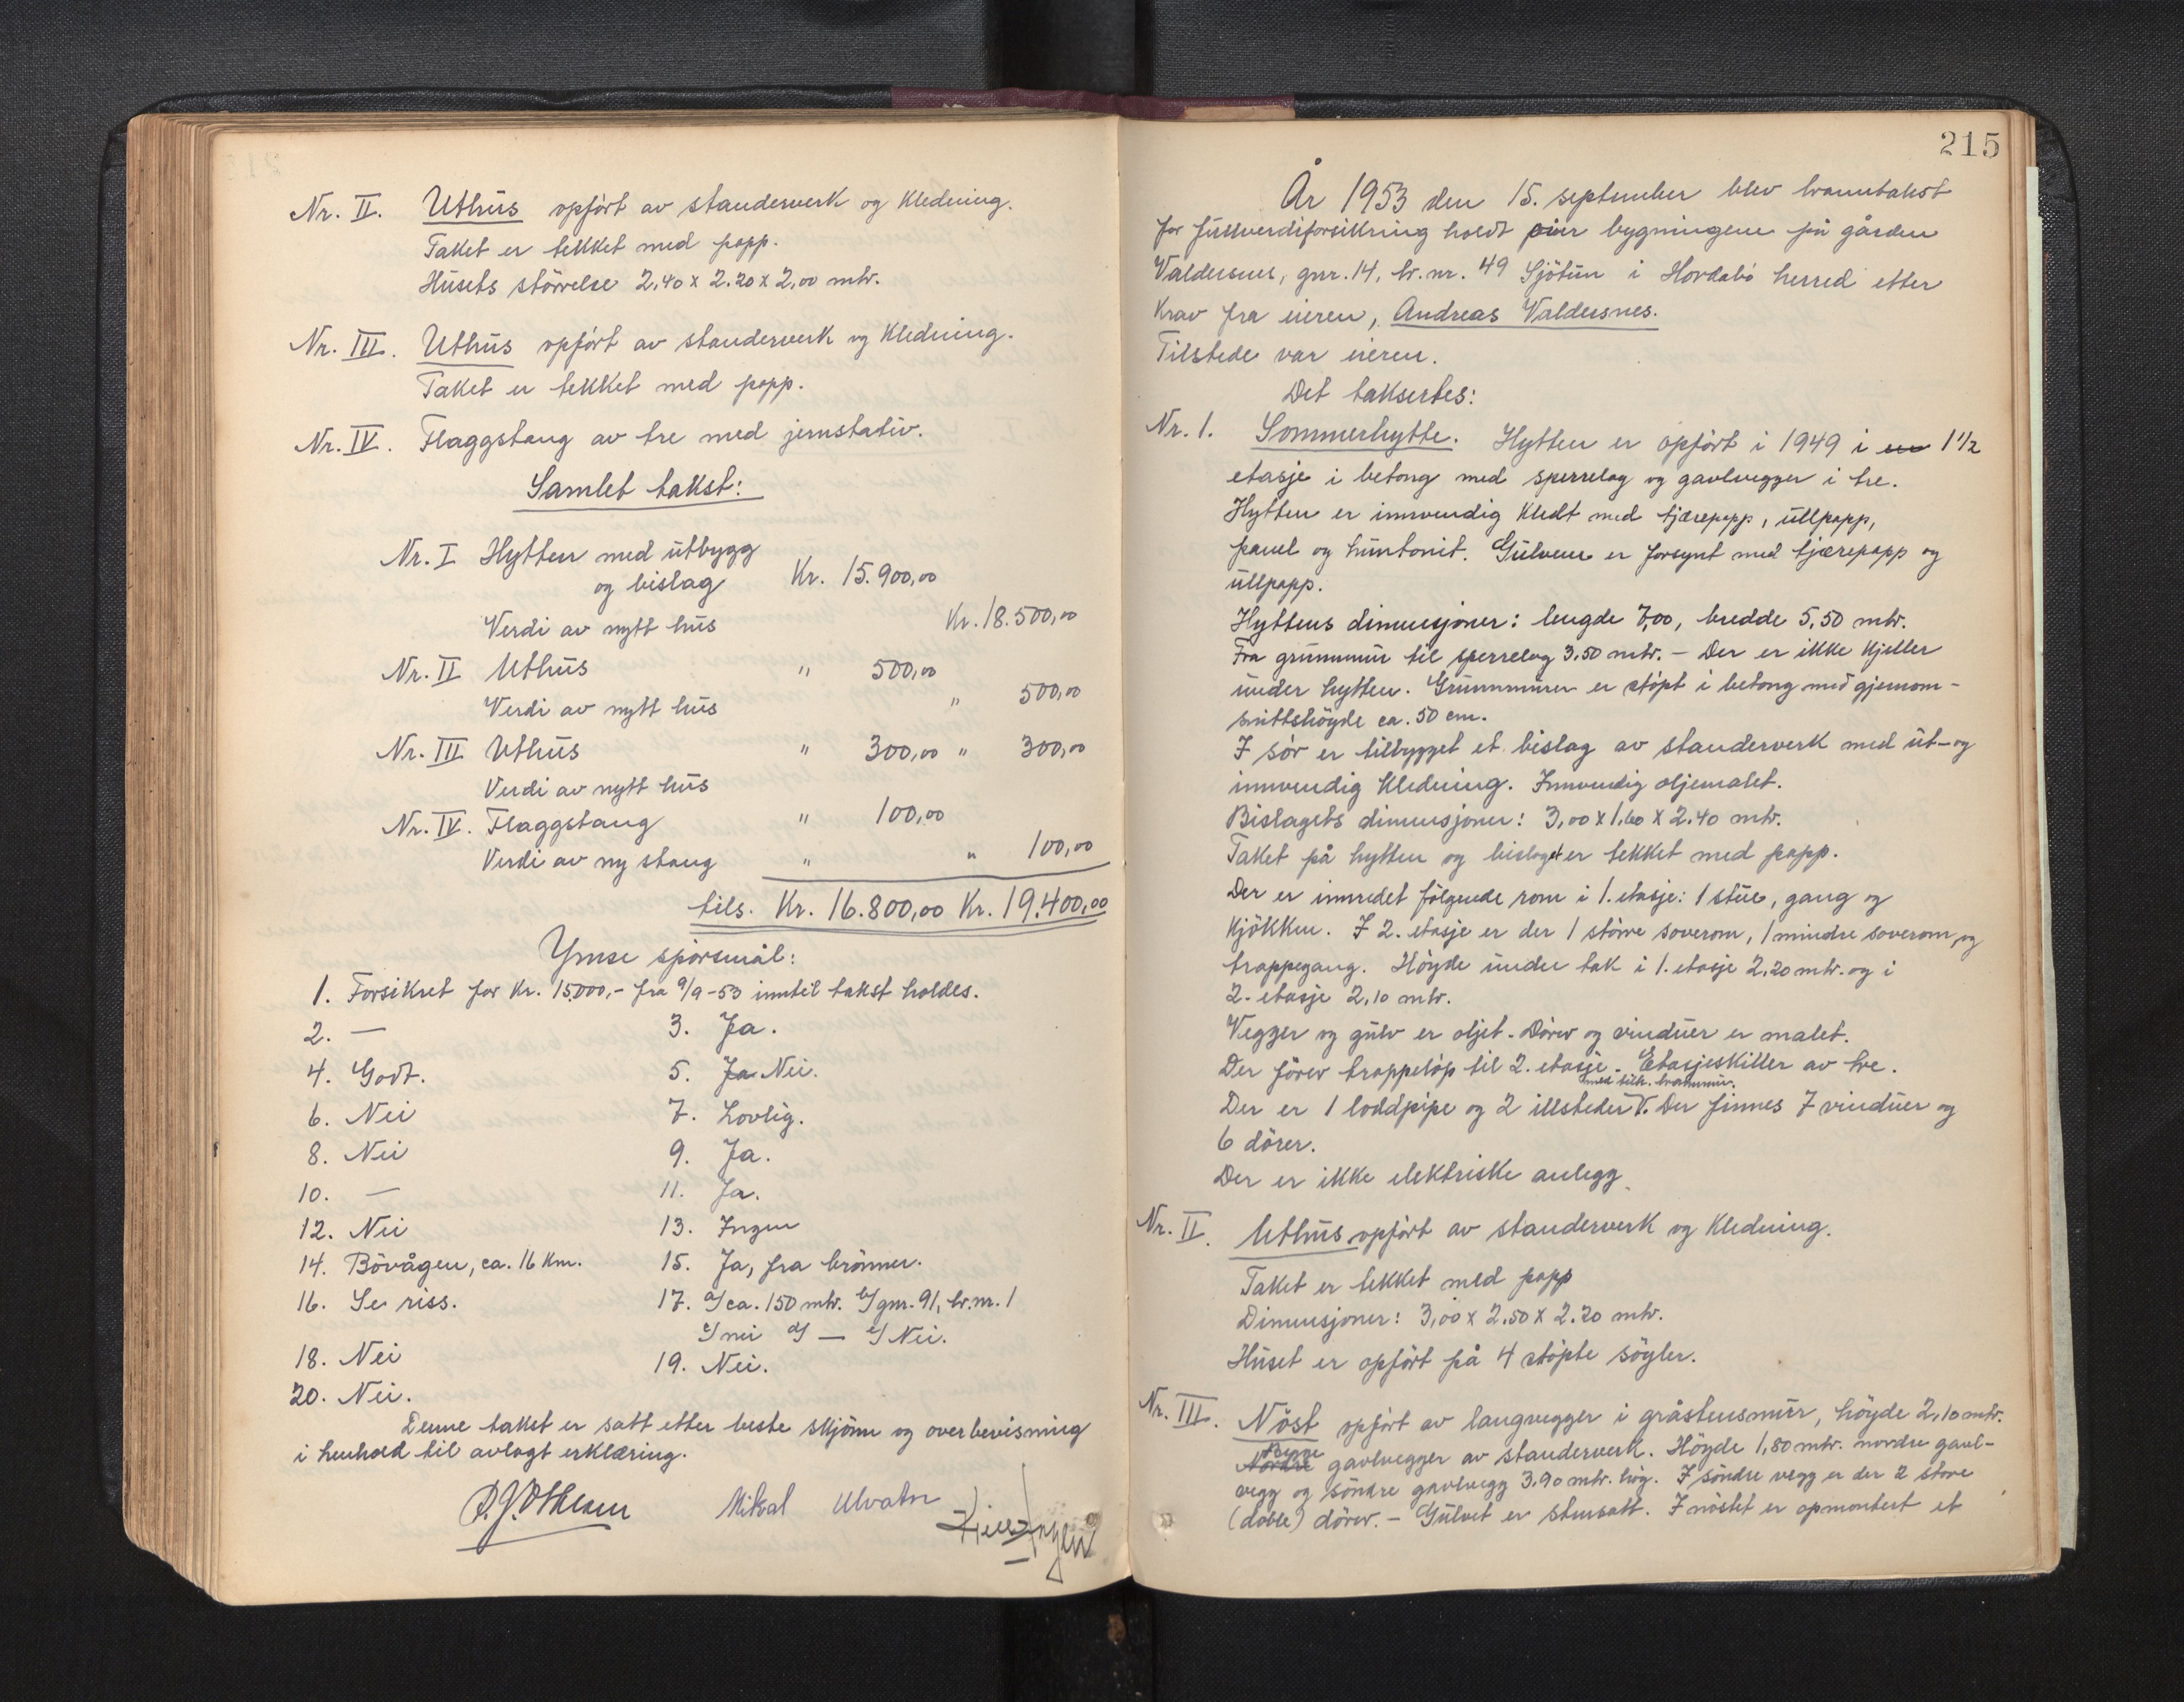 Nr. II. Uthus opført av standerverk og kledning.
Taket er tekket med papp.
Husets størrelse 2,40 x 2.20 x 2,00 mtr.
Nr. III. Uthus opført av standerverk og kledning.
Taket er tekket med papp.
Nr. IV. Flaggstang av tre med jernstativ.
Samlet takst:
Nr. I Hytten med utbygg
og bislag Kr. 15.900,00
Verdi av nytt hus Kr. 18.500,00
Nr. II Uthus " 500,00
Verdi av nytt hus " 500,00
Nr. III Uthus " 300,00 " 300,00
Verdi av nytt hus
Nr. IV. Flaggstang " 100,00
Verdi av ny stang " " 100,00
tils. Kr. 16.800,00 Kr. 19.400,00
Ymse spørsmål:
1. Forsikret for kr. 15000,- fra 9/9-53 inntil takst holdes.
2. — 3. Ja.
4. Godt. 5. Ja Nei.
6. Nei 7. Lovlig.
8. Nei 9. Ja.
10. — 11. Ja.
12. Nei 13. Ingen
14. Bövågen, ca. 16 km. 15. Ja, fra brönner.
16. Se riss. 17. a/ ca. 150 mtr. b/ gnr. 91, br.nr. 1
c/ nei d/ — e/ Nei.
18. Nei 19. Nei.
20. Nei.
Denne takst er satt etter beste skjönn og overbevisning
i henhold til avlagt erklæring.
Mikal Ulvatn
215
År 1953 den 15. september blev branntakst
for fullverdiforsikring holdt over bygningene på gården
Valdersnes, gnr. 14, br. nr. 49 Sjötun i Hordabö herred etter
krav fra eieren, Andreas Valdersnes.
Tilstede var eieren.
Det taksertes:
Nr. 1. Sommerhytte. Hytten er opført i 1949 i en 1 1/2
etasje i betong med sperrelag og gavlvegger i tre.
Hytten er innvendig kledt med tjærepapp, ullpapp,
panel og huntonit. Gulvene er forsynt med tjærepapp og
ullpapp.
Hyttens dimensjoner: lengde 7,00, bredde 5,50 mtr.
Fra grunnmur til sperrelag 3.50 mtr. - Der er ikke kjeller
under hytten. Grunnmuren er støpt i betong med gjennom-
snittshöyde ca. 50 cm.
I sør er tilbygget et bislag av standerverk med ut- og
innvendig kledning. Innvendig oljemalet.
Bislagets dimensjoner: 3,00 x 1,60 x 2.40 mtr.
Taket på hytten og bislaget er tekket med papp.
Der er innredet fölgende rom i 1. etasje: 1 stue, gang og
kjökken. I 2. etasje er der 1 större soverom, 1 mindre soverom, og
trappegang. Höyde under tak i 1. etasje 2,20 mtr. og i
2. etasje 2,10 mtr.
Vegger og gulv er oljet. Dörer og vinduer er malet.
Der förer trappelöp til 2. etasje. Etasjeskiller av tre.
med tilh. brannmur.
Der er 1 loddpipe og 2 illsteder V. Der finnes 7 vinduer og
6 dörer.
Der er ikke elektriske anlegg.
Nr. II. Uthus opført av standerverk og kledning.
Taket er tekket med papp
Dimensjoner: 3,00 x 2.50 x 2.20 mtr.
Huset er opført på 4 støpte söyler.
Nr. III. Nöst opført av langvegger i gråstensmur, höyde 2,10 mtr.
Begge
Nordre gavlvegger av standerverk. Höyde 1,80 mtr. nordre gavl-
vegg og söndre gavlvegg 3.90 mtr. höy. I söndre vegg er der 2 store
(doble) dörer. - Gulvet er stensatt. I nöstet er opmontert et